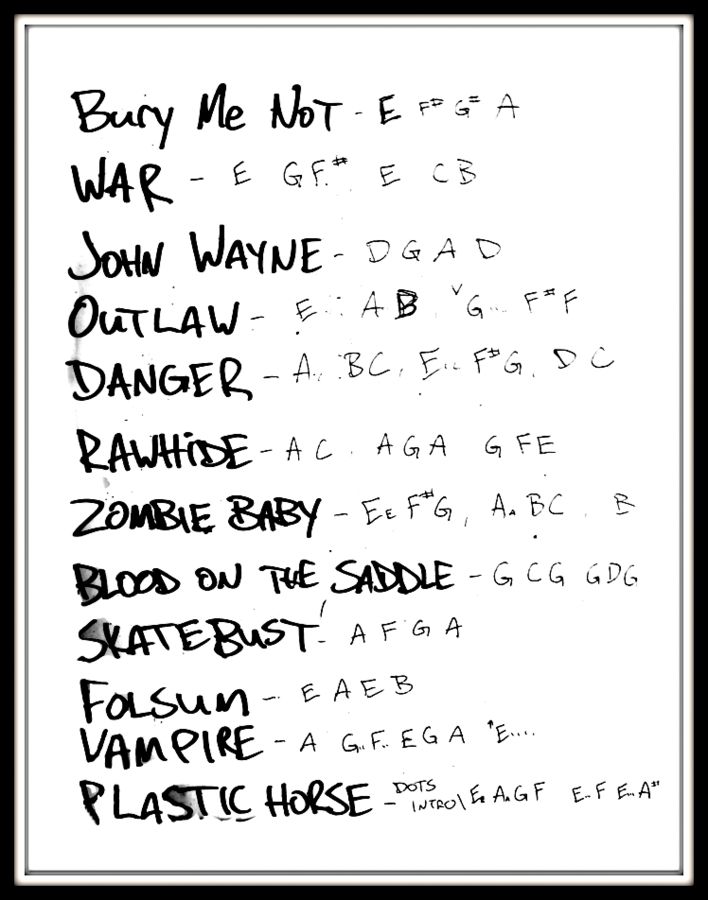 Bury Me Not - E F# G# A
WAR - E GF.# E C B
JOHN WAYNE - D G A D
OUTLAW - E : A B . ˅G... F#F
DANGER - A.. :BC, E... F#G, D C
RAWHiDE - A C . A G A G F E
ZOMBIE BABY - EE F#G, A. BC . B
BLOOD ON THE SADDLE - G C G G D G
SKATEBUST! A F G A
FOLSUM - E A E B
VAMPIRE - A G.. F.. E G A 'E....
PLASTIC HORSE - DOTS INTRO\ E A.GF E..F E...A#